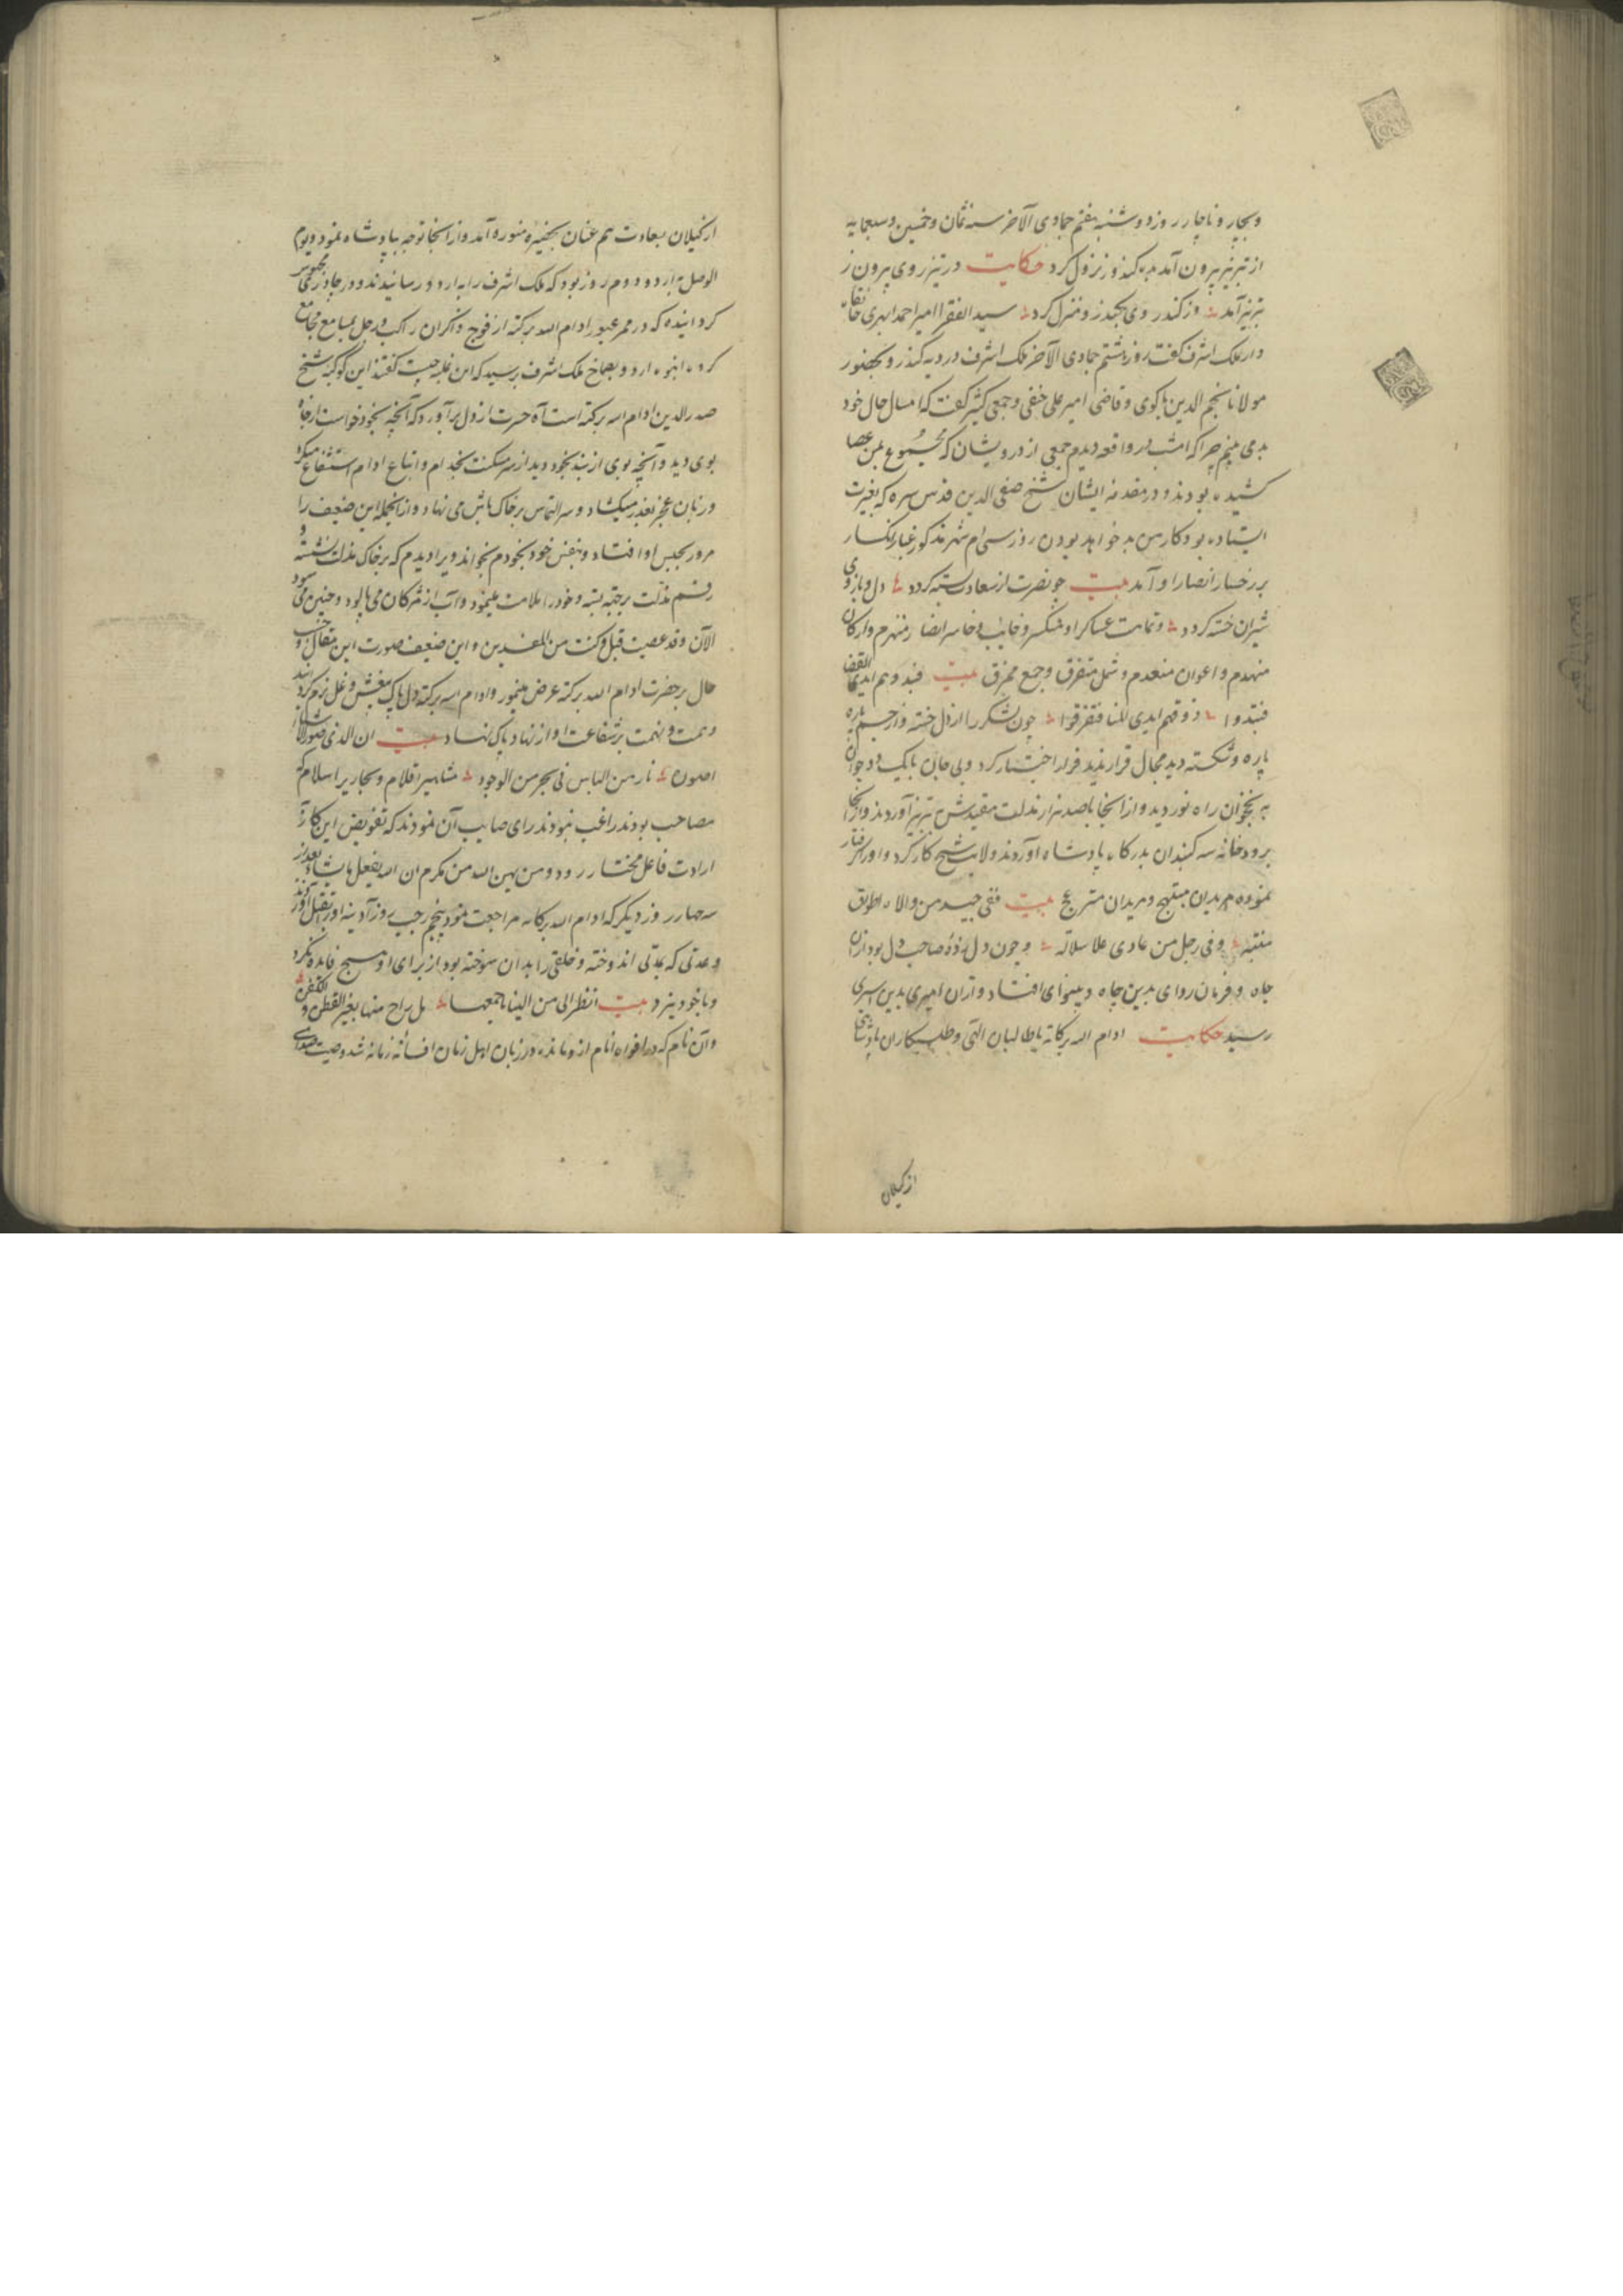 و بچار و ناچار روز دوشنبه هفتم جمادی الآخر سنه ثمان و خمسین و سبعمایه
از تبریز بیرون آمد و به کندرو نزول کرد حکایت در تبریز روی بیرون ز
تبریز آمد وز کندر وی بجید ز و منزل کرد سید الفقرا امیر احمد ابهری خانقاه
دار ملک اشرف گفت روز هشتم جمادی الآخر ملک اشرف در دیه کندرو بحضور
مولانا نجم الدین باکوی و قاضی امیر علی حنفی و جمعی کثیر گفت که امسال حال خود
بد می بینم چرا که امشب در واقعه دیدم جمعی از درویشان که مجموع بمن عصا
کشیده بودند و در مقدمه ایشان شیخ صفی الدین قدس سره که بغیرت
ایستاده بود و کار من بد خواهد بودن روز سی ام شهر مذکور غبار انکسار
بر رخسار انصار او آمد بیت چو نصرت از سعادت بسته گردد دل و بازوی
شیران خسته گردد و تمامت عساکر او منکسر و خایب و خاسر انصار منهزم و ارکان
منهدم و اعوان منعدم و شمل متفرق و جمع ممزق بیت فبدوهم ایدی القضا
فتبددوا و فرقهم ایدی المنا فتفرقوا چون لشکر را از دل خسته و از جسم پاره
پاره و شکسته دید مجال قرار ندید فرار اختیار کرد و بی جان با یک دو جوان
به نخجوان راه نوردید و از انجا با صد هزار مذلت مقیدش بتبریز آوردند و از انجا
برودخانه سه کنبدان بدرکاه پادشاه آوردند ولایت شیخ کار کرد و او را گرفتار
نموده مریدان مبتهج و مریدان متزعج بیت ففی جید من والاه اطواق
منته وفی رجل من عادی علا سلاله و چون دل زده صاحب دل بود از ان
جاه و فرمان روای بدین چاه و بینوای افتاد و از ان امیری بدین اسیری
رسید حکایت ادام الله برکاته با طالبان الهی و طلبکاران پادشاهی
از کیلان
از کیلان بسعادت هم عنان بحضیره منوره آمد و از انجا توجه بپادشاه نمود و یوم
الوصل به اردو دوم روز بود که ملک اشرف را به اردو رسانیدند و در جادر محبوس
کردانیده که در ممر عبور ادام الله برکته از فوج ذاکران راکب و رجل بمسامع مجامع
کرده انبوه اردو بصماخ ملک اشرف برسید که این غلبه چیست گفتند این کوکبه شیخ
صدر الدین ادام الله برکته است آه حسرت از دل برآورد که آنچه بخود خواست از جاه
بوی دید و آنچه بوی از بند بخود دید از سر مسکنت بخدام و اتباع ادام استشفاع میکرد
و زبان عجز بعذر میکشاد و سر التماس بر خاک پایش می نهاد و از انجمله این ضعیف را
مرور بحبس او افتاد و بنفس خود بخودم بخواند ویرا دیدم که بر خاک مذلت نشسته و
رقم مذلت بر جبه بسته و خود را ملامت مینمود و آب از مژکان می پالود و چنین می سرود
الآن و قد عصیت قبل و کنت من المفسدین و این ضعیف صورت این مقال و حسب
حال بر حضرت ادام الله برکته عرض مینمود و ادام الله برکته دل پاک بیغش و غل نرم کردانید
و همت و نهمت بر شفاعت او از نهاد پاک نهاد بیت ان الذی
نار من الباس فی بحر من الوجود مشاهیر اقلام و نحاریر اسلام که
مصاحب بودند راغب نبودند رای صایب آن نمودند که تفویض این کار به
ارادت فاعل مختار رود و من یهن الله من مکرم ان الله یفعل ما یشاء بعد از
سه چهار روز دیگر که ادام الله برکاته مراجعت نمود پنجم رجب روز آدینه او را بقتل آوردند
و عدتی که بمدتی اندوخته و خلقی را بدان سوخته بود از برای او هیچ فایده نکرد
و با خود نبرد بیت انظر الی من الینا باجمعها هل راح منها بغیر القطن و الکفن
و آن نام که در افواه انام از و بماند در زبان اهل زمان افسانه زمانه شد و صیت